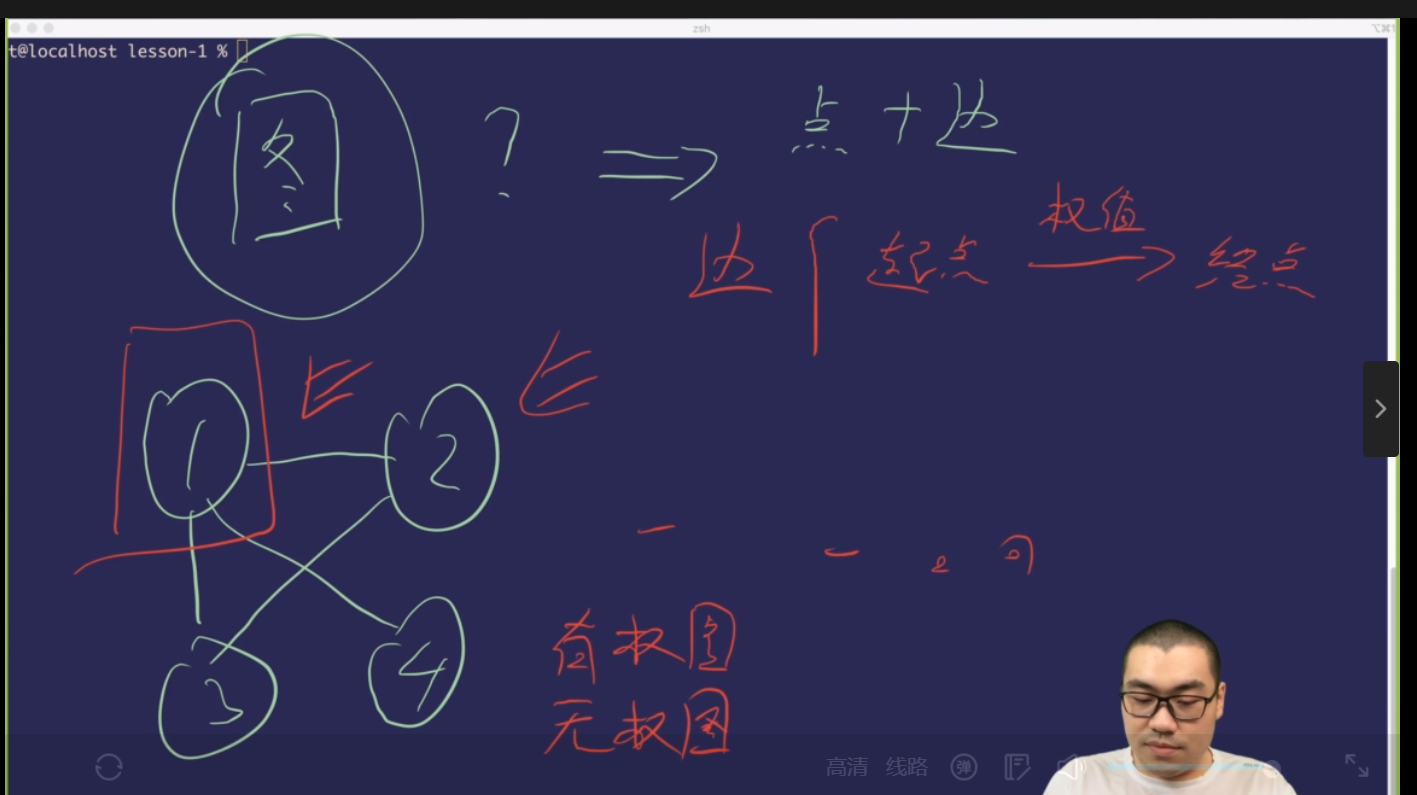 zsh
t@localhost lesson-1 %
图 ? ⇒ 点 + 边
权值
边 起点 → 终点
1 2
3 4
有权图
无权图
高清 线路 弹